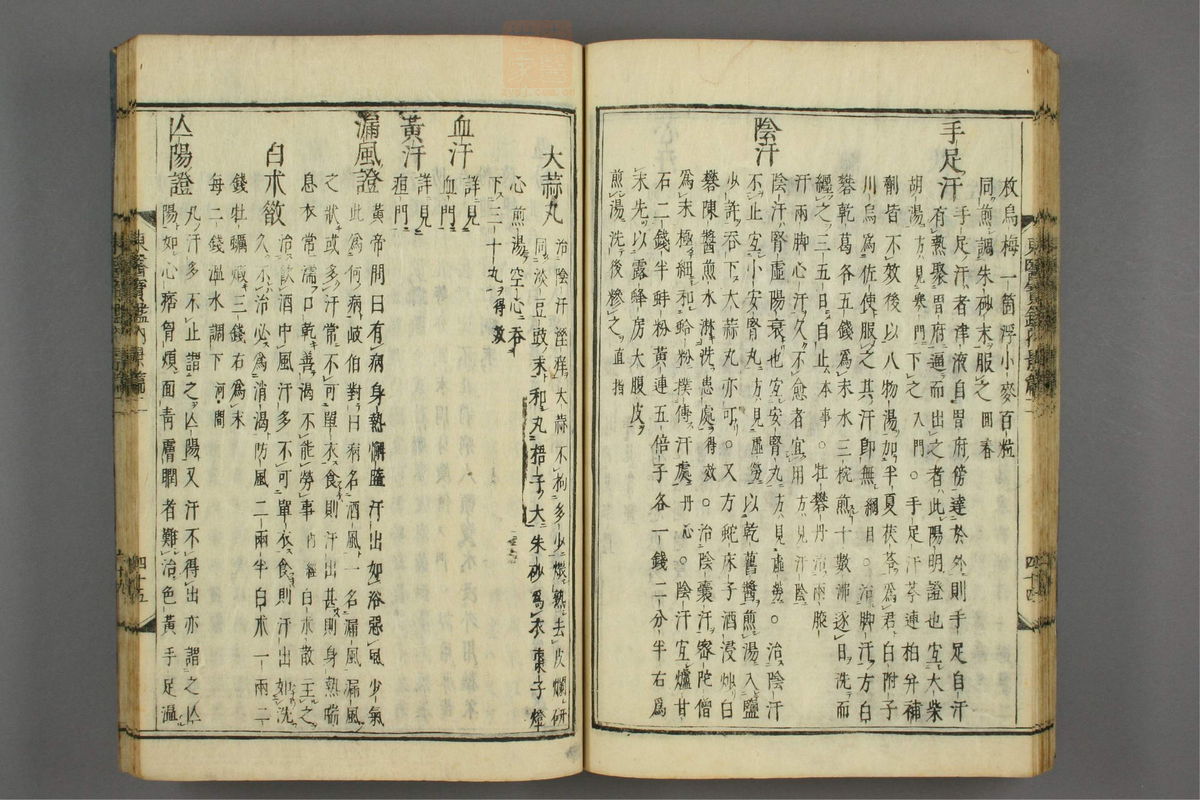 枚烏梅一箇浮小麥百粒
同煎調朱砂末服之回春
手足汗
手足汗者津液自胃府傍達於外則手足自汗
有熱聚胃府逼而出之者此陽明證也宜大柴
胡湯方見寒門下之入門○手足汗芩連柏幷補
劑皆不效後以八物湯加半夏茯苓爲君白附子
川烏爲佐使服之其汗卽無綱目○治脚汗方白
礬乾葛各五錢爲末水三椀煎十數沸逐日洗而
纏之三五日自止本事○牡礬丹治兩腋
汗兩脚心汗久不愈者宜用方見汗陰
陰汗
陰汗腎虛陽衰也宜安腎丸方見虛勞○治陰汗
不止宜小安腎丸方見虛勞以乾舊醬煎湯入鹽
少許吞下大蒜丸亦可○又方蛇床子酒浸炒白
礬陳醬煎水淋洗患處得效○治陰囊汗密陀僧
爲末極細和蛤粉撲傅汗處丹心○陰汗宜爐甘
石二錢半蚌粉黃連五倍子各一錢二分半右爲
末先以露蜂房大腹皮
煎湯洗後糝之直指
大蒜丸
治陰汗濕痒大蒜不拘多少煨熟去皮爛研
同淡豆豉末和丸梧子大朱砂爲衣棗子燈
心煎湯空心吞
下三十丸得效
血汗
詳見
血門
黃汗
詳見
疸門
漏風證
黃帝問曰有病身熱懈墮汗出如浴惡風少氣
此爲何病岐伯對曰病名酒風一名漏風漏風
之狀或多汗常不可單衣食則汗出甚則身熱喘
息衣常濡口乾善渴不能勞事內經白朮散主之
白朮散
治飮酒中風汗多不可單衣食則汗出如洗
久不治必爲消渴防風二兩半白朮一兩二
錢牡蠣煆三錢右爲末
每二錢溫水調下河間
亾陽證
凡汗多不止謂之亾陽又汗不得出亦謂之亾
陽如心痞胷煩面靑膚瞤者難治色黃手足溫